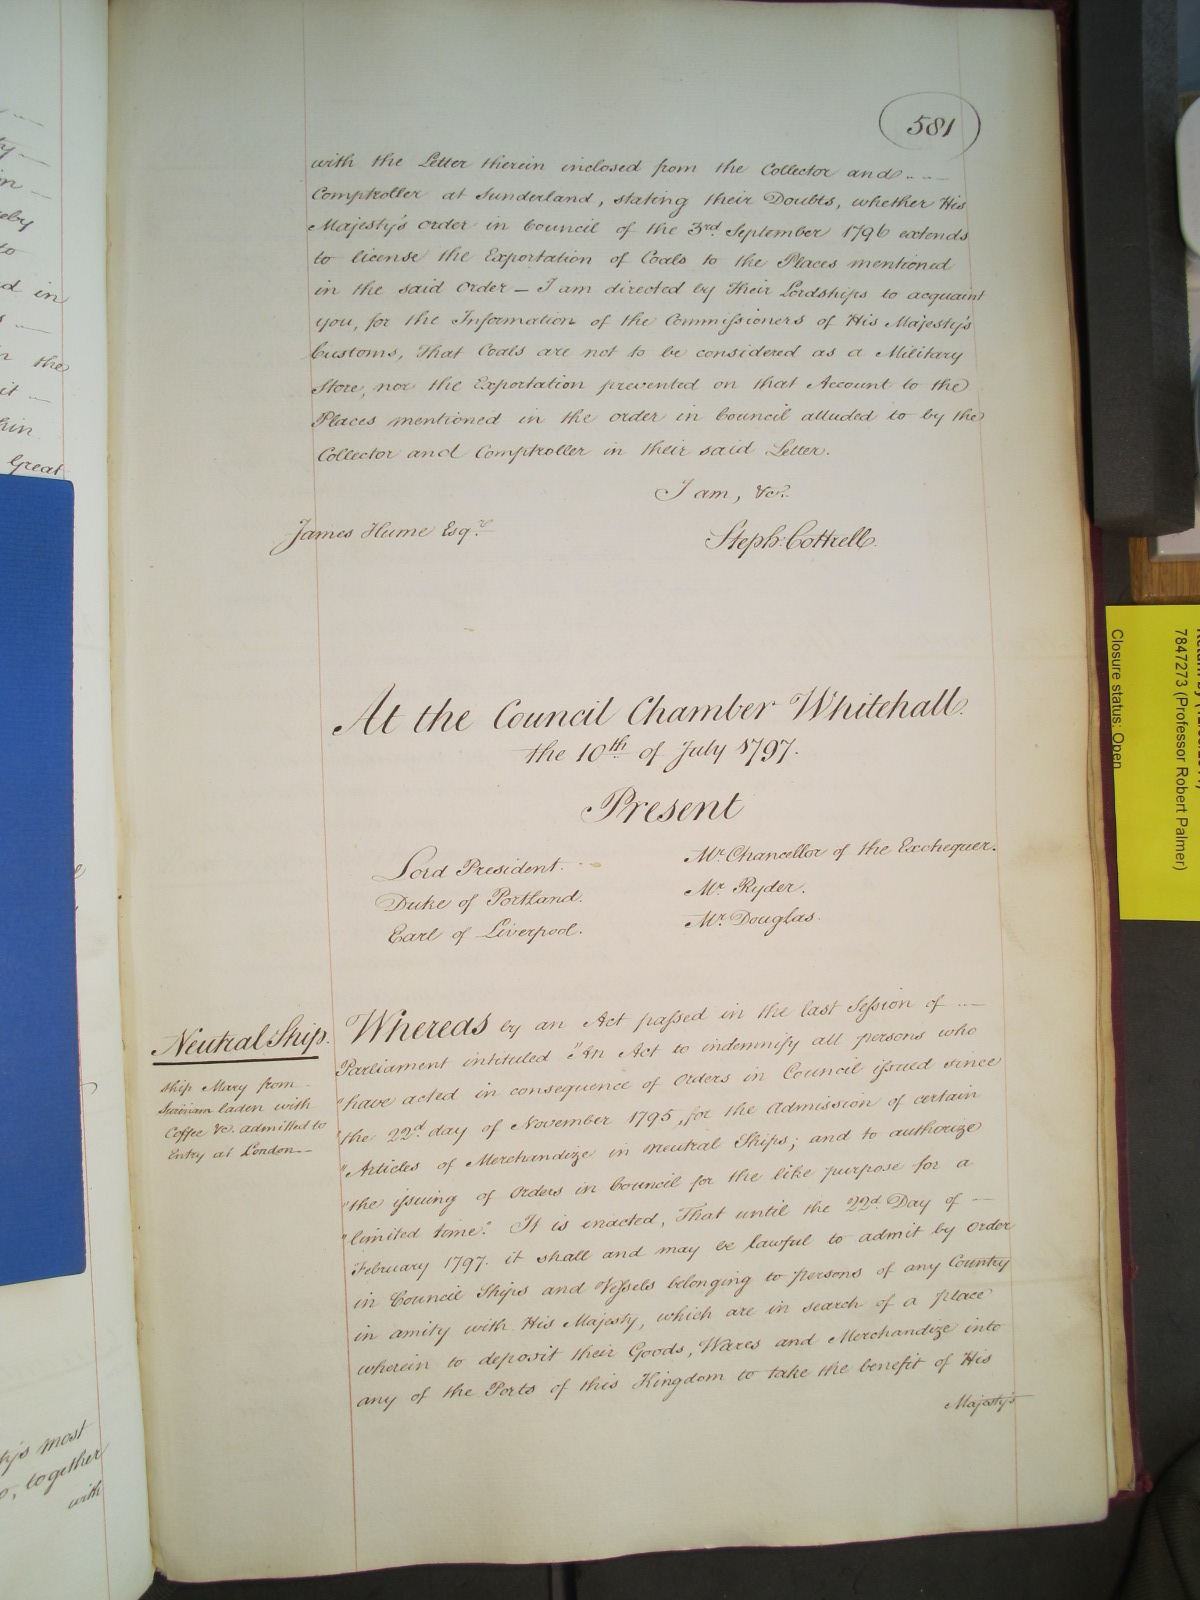 581
with the Letter therein inclosed from the Collector and
Comptroller at Sunderland, stating their Doubts, whether His
Majesty's Order in Council of the 3rd September 1796 extends
to license the Exportation of Coals to the Places mentioned
in the said Order — I am directed by Their Lordships to acquaint
you, for the Information of the Commissioners of His Majesty's
Customs, That Coals are not to be considered as a Military
Store, nor the Exportation prevented on that Account to the
Places mentioned in the Order in Council alluded to by the
Collector and Comptroller in their said Letter.
I am, &c.
James Hume Esqre
Steph: Cottrell.
At the Council Chamber Whitehall.
the 10th of July 1797.
Present
Lord President.
Duke of Portland.
Earl of Liverpool.
Mr. Chancellor of the Exchequer.
Mr. Ryder.
Mr. Douglas.
Neutral Ship.
Ship Mary from
Surinam laden with
Coffee &c. admitted to
Entry at London
Whereas by an Act passed in the last Session of
Parliament intituled "An Act to indemnify all persons who
"have acted in consequence of Orders in Council issued since
"the 22d. day of November 1795, for the Admission of certain
"Articles of Merchandize in neutral Ships; and to authorize
"the issuing of Orders in Council for the like purpose for a
"limited time." It is enacted, That until the 22d. Day of
February 1797. it shall and may be lawful to admit by Order
in Council Ships and Vessels belonging to persons of any Country
in amity with His Majesty, which are in search of a place
wherein to deposit their Goods, Wares and Merchandize into
any of the Ports of this Kingdom to take the benefit of His
Majesty's
eby
to
d in
the
it
hin
Great
ty's most
together
with
Closure status: Open
7847273 (Professor Robert Palmer)